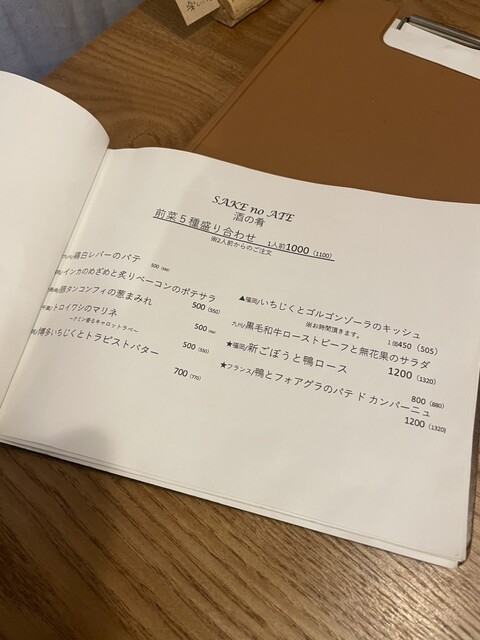 SAKE no ATE
酒の肴
前菜５種盛り合わせ 1人前1000（1100）
※2人前からのご注文
鶏白レバーのパテ 500
インカのめざめと炙りベーコンのポテサラ
500（550）
豚タンコンフィの葱まみれ
トロイワシのマリネ 500
～クミン香るキャロットラペ～
500（550）
博多いちじくとトラピストバター
700（770）
▲福岡/いちじくとゴルゴンゾーラのキッシュ
※お時間頂きます。 1個450（505）
九州/黒毛和牛ローストビーフと無花果のサラダ
1200（1320）
★福岡/新ごぼうと鴨ロース
800（880）
★フランス/鴨とフォアグラのパテ ド カンパーニュ
1200（1320）